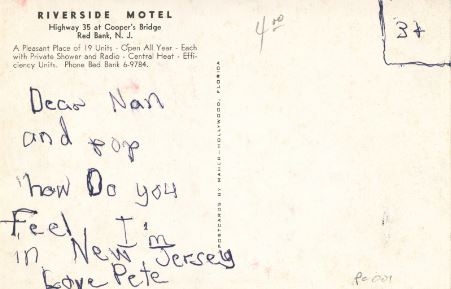 RIVERSIDE MOTEL
Highway 35 at Cooper's Bridge
Red Bank, N. J.
A Pleasant Place of 19 Units - Open All Year - Each
with Private Shower and Radio - Central Heat - Effi-
ciency Units. Phone Bed Bank 6-9784.
Dear Nan
and pop
how Do you
Feel I'm
in New Jersey
Love Pete
POSTCARDS BY MAHER—HOLLYWOOD, FLORIDA
4.00
3¢